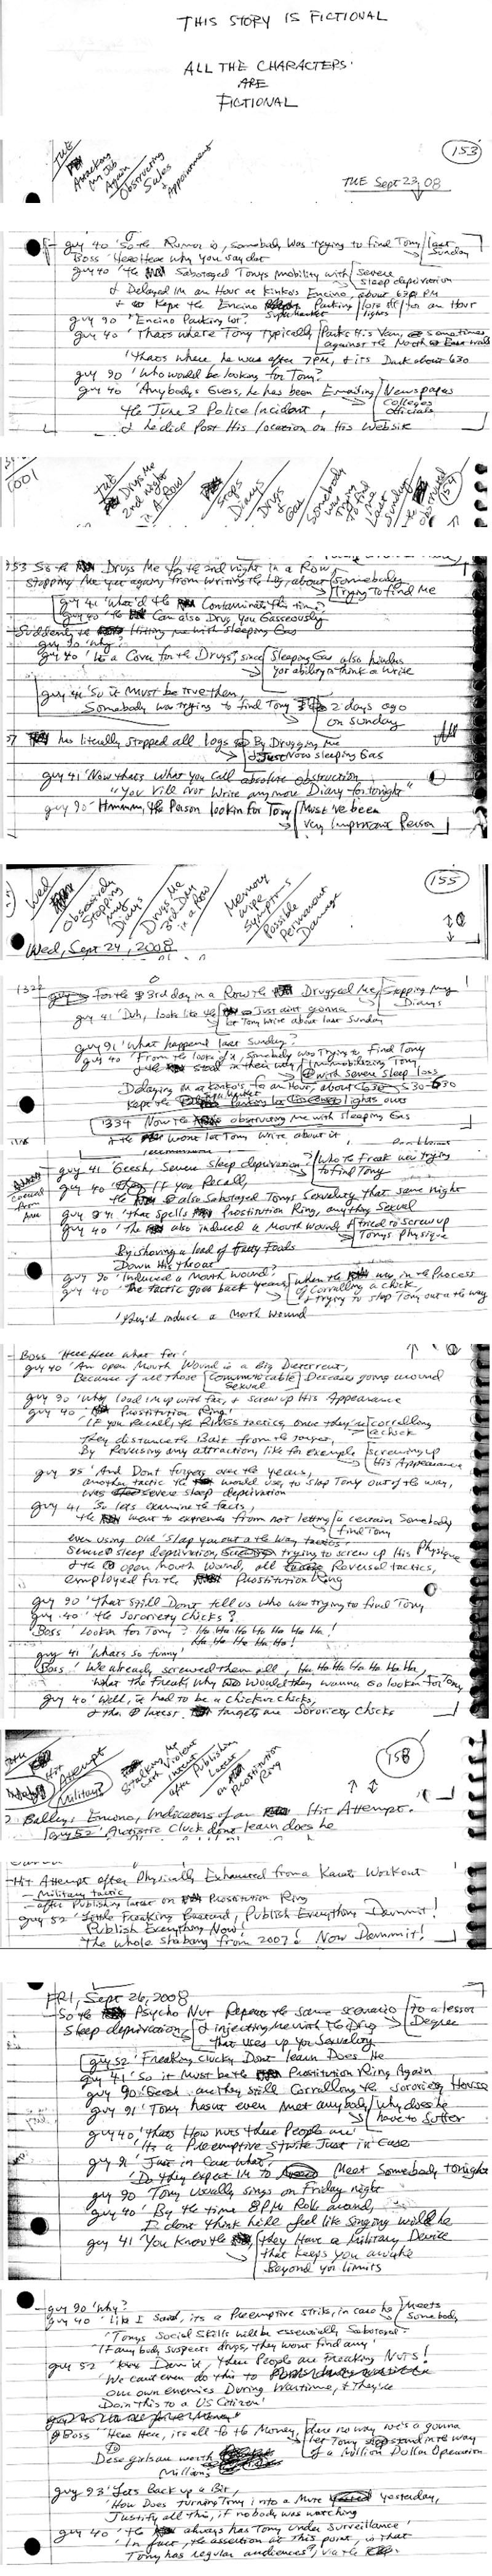 THIS STORY IS FICTIONAL
ALL THE CHARACTERS
ARE
FICTIONAL
TUE
Attacking
My Job
Again
Obstructing
Sales
Appointment
153
TUE Sept 23, 08
guy 40 'So the Rumor is, somebody Was trying to find Tony last Sunday
Boss 'Here Here why you say dat
guy 40 'the Sabotaged Tonys mobility with severe sleep deprivation
& Delayed Im an Hour at Kinkos Encino, about 630 PM
& Kept the Encino Parking lots lights for an Hour
supermarket
guy 90 'Encino Parking lot?
guy 40 'Thats where Tony Typically Parks His Van, sometimes against the North East wall
'thats where he was after 7PM, & its Dark about 630
guy 90 'Who would be looking for Tony?
guy 40 'Anybodys Guess, he has been Emailing Newspapers Colleges officials
the June 3 Police Incident,
& he did Post His location on His Website
1001
TUE
Drugs Me
2nd night
in A Row
Stops
Diarys
Drugs
&
Gas
Somebody
was
trying
to find
me
Last
Sunday
obstructed
154
So the Drugs Me for the 2nd night in a Row,
Stopping Me yet again from writing the Log, about Somebody Trying To find Me
guy 41 'What'd the Contaminate this time?
guy 40 'the Can also Drug you Gaseously
Suddenly the Hitting me with Sleeping Gas
guy 90 'Why?
guy 40 'Its a Cover for the Drugs, since Sleeping Gas also hinders your ability to think & write
guy 41 'So it Must be true then,
Somebody was trying to find Tony 2 days ago on Sunday
has literally stopped all logs By Drugging Me & Just Now sleeping Gas
guy 41 'Now thats What you Call absolute obstruction
"You Vill Not Write anymore Diary for tonight"
guy 90 'Hmmmm, the Person lookin for Tony Must've been Very Important Person
Wed
Obsessively
Stopping
my
Diarys
Drugs Me
3rd Day
in a Row
Memory
wipe
Symptoms
Possible
Permanant
Damage
155
Wed, Sept 24, 2008
1322
For the 3rd day in a Row the Drugged Me, Stopping My Diarys
guy 41 'Duh, look like the Just aint gonna let Tony Write about last Sunday
guy 91 'What happend last Sunday?
guy 40 'From the looks of it, Somebody was Trying to find Tony
& the stood in their way Immobilizing Tony with Severe sleep loss
Delaying Im at Kinko's for an Hour, about 530-630
Kept the Parking lot lights outs
1334 Now the obstructing me with sleeping Gas
& the wont let Tony Write about it
guy 41 'Geesh, Severe sleep deprivation? Who the Freak was trying to find Tony
guy 40 'If You Recall,
the also Sabotaged Tonys Sexuality that same night
guy 41 'that Spells Prostitution Ring, anything Sexual
guy 40 'The also induced a Mouth Wound & tried to Screw up Tonys Physique
By shoving a load of Fatty Foods
Down His throat
guy 90 'Induced a Mouth Wound?
guy 40 'The tactic goes back years, when the was in the Process of Corralling a chick & trying to slap Tony out of the way
'they'd induce a Mouth Wound
Boss 'Here Here what for?
guy 40 'An open Mouth Wound is a Big Deterrent,
Because of all those Communicable Sexual Diseases going around
guy 90 'Why load Im up with fat, & screw up His Appearance
guy 40 ' Prostitution Ring!
If you Recall, the RINGs tactics, once they're corralling a chick
they distance the Bait from the target,
By Reversing any attraction, like for example screwing up His Appearance
guy 95 'And Dont forget, over the years,
another tactic the would use, to Slap Tony out of the way,
was severe sleep deprivation
guy 41 So lets examine the facts,
the went to extremes from not letting a certain Somebody find Tony
even using old 'Slap you out a the way tactics'
Severe sleep deprivation, trying to screw up His Physique
& the open mouth Wound, all Reversal tactics,
employed for the Prostitution Ring
guy 90 'That still Dont tell us who was trying to find Tony
guy 40 'the Sororiety Chicks?
Boss 'Lookin for Tony? Ha Ha Ha Ha Ha Ha Ha!
Ha Ha Ha Ha Ha!
guy 41 'Whats so funny'
Boss 'We already screwed them all, Ha Ha Ha Ha Ha Ha,
What the Freak, why Would they wanna Go lookin for Tony
guy 40 'Well, it had to be a Chick or Chicks,
& the latest targets are Sororiety Chicks
Hit
Attempt
Military?
Stalking Me
with Violent
intent
after Publishing
latest
on
Prostitution
Ring
158
Ballys Encino, Indications of an Hit Attempt.
guy 52 'Autistic Cluck dont learn does he
-Hit Attempt after Physically Exhausted from a Karate Workout
-Military tactic
-after Publishing latest on Prostitution Ring
guy 52 'Little Freaking Bastard, Publish Everything Dammit!
Publish Everything Now!
'The whole shabang from 2007! Now Dammit!
FRI, Sept 26, 2008
So the Psycho Nut Repeats the same scenario to a lessor Degree
Sleep deprivation & injecting me with the Drug that uses up your Sexuality
guy 52 'Freaking Clucky Dont learn Does He
guy 41 'So it Must be the Prostitution Ring Again
guy 90 'Geesh are they still Corralling the Sororiety House
guy 91 'Tony hasnt even Met anybody, why does he have to Suffer
guy 40, 'thats How nuts these People are'
'Its a Preemptive Strike Just in Case
guy 91 'Just in Case what,
'Do they expect Im to Meet Somebody tonight
guy 90 'Tony usually sings on Friday night
guy 40 'By the time 8PM Rolls around,
I dont think he'll feel like singing will he
guy 41 'You Know the they Have a Military Device that keeps you awake Beyond your limits
guy 90 'Why?
guy 40 'Like I Said, its a Preemptive Strike, in case he Meets Somebody
'Tonys Social Skills will be essencially Sabotaged'
'If any body suspects drugs, they wont find any'
guy 52 'Damn it, these People are freaking NUTS!
'We cant even do this to
our own enemies During Wartime, & they're
Doin this to a US Citizen!
Boss 'Here Here, its all fo the Money, dere no way we's a gonna let Tony stand in the way of a Million Dollar Operation
Dese girls are worth
Millions
guy 93 'Lets Back up a Bit,
'How Does turning Tony into a Mute yesterday,
Justify all this, if nobody was watching
guy 40 'the always has Tony under Surveillance'
'In fact, the assertion at this point, is that
Tony has regular audiences, via the